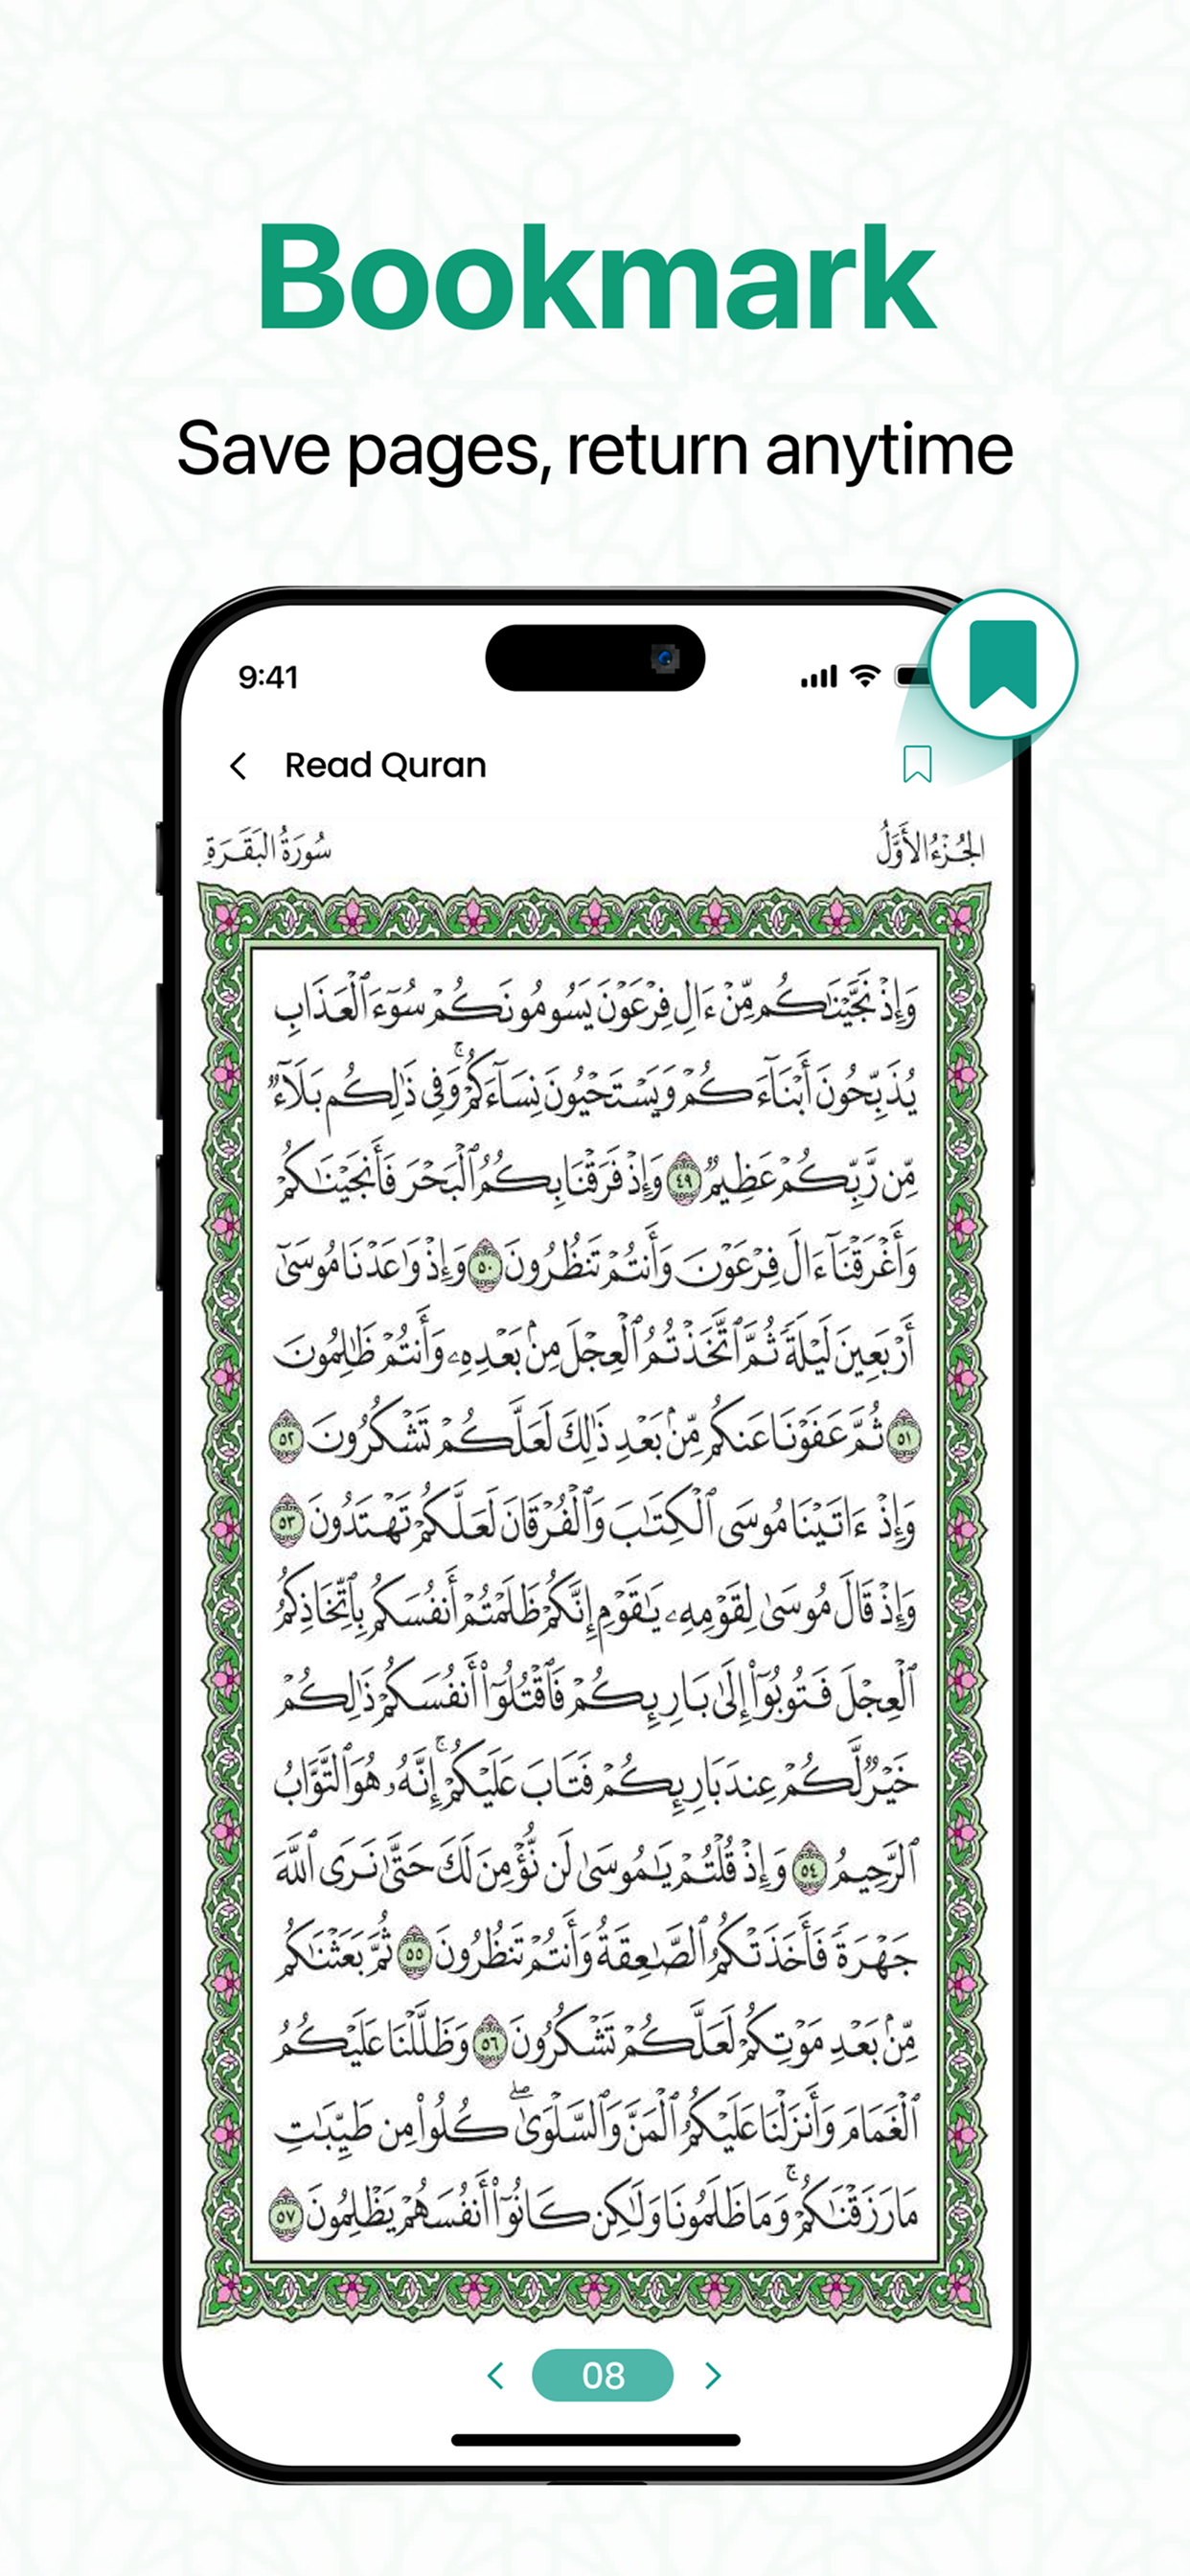 Bookmark
Save pages, return anytime
9:41
Read Quran
الجُزْءُ الأَوَّلُ
سُورَةُ البَقَرَةِ
وَإِذْ نَجَّيْنَـٰكُم مِّنْ ءَالِ فِرْعَوْنَ يَسُومُونَكُمْ سُوٓءَ ٱلْعَذَابِ
يُذَبِّحُونَ أَبْنَآءَكُمْ وَيَسْتَحْيُونَ نِسَآءَكُمْ ۚ وَفِى ذَٰلِكُم بَلَآءٌ
مِّن رَّبِّكُمْ عَظِيمٌ ٤٩ وَإِذْ فَرَقْنَا بِكُمُ ٱلْبَحْرَ فَأَنجَيْنَـٰكُمْ
وَأَغْرَقْنَآ ءَالَ فِرْعَوْنَ وَأَنتُمْ تَنظُرُونَ ٥٠ وَإِذْ وَٰعَدْنَا مُوسَىٰٓ
أَرْبَعِينَ لَيْلَةً ثُمَّ ٱتَّخَذْتُمُ ٱلْعِجْلَ مِنۢ بَعْدِهِۦ وَأَنتُمْ ظَـٰلِمُونَ
٥١ ثُمَّ عَفَوْنَا عَنكُم مِّنۢ بَعْدِ ذَٰلِكَ لَعَلَّكُمْ تَشْكُرُونَ ٥٢
وَإِذْ ءَاتَيْنَا مُوسَى ٱلْكِتَـٰبَ وَٱلْفُرْقَانَ لَعَلَّكُمْ تَهْتَدُونَ ٥٣
وَإِذْ قَالَ مُوسَىٰ لِقَوْمِهِۦ يَـٰقَوْمِ إِنَّكُمْ ظَلَمْتُمْ أَنفُسَكُم بِٱتِّخَاذِكُمُ
ٱلْعِجْلَ فَتُوبُوٓا۟ إِلَىٰ بَارِئِكُمْ فَٱقْتُلُوٓا۟ أَنفُسَكُمْ ذَٰلِكُمْ
خَيْرٌ لَّكُمْ عِندَ بَارِئِكُمْ فَتَابَ عَلَيْكُمْ ۚ إِنَّهُۥ هُوَ ٱلتَّوَّابُ
ٱلرَّحِيمُ ٥٤ وَإِذْ قُلْتُمْ يَـٰمُوسَىٰ لَن نُّؤْمِنَ لَكَ حَتَّىٰ نَرَى ٱللَّهَ
جَهْرَةً فَأَخَذَتْكُمُ ٱلصَّـٰعِقَةُ وَأَنتُمْ تَنظُرُونَ ٥٥ ثُمَّ بَعَثْنَـٰكُم
مِّنۢ بَعْدِ مَوْتِكُمْ لَعَلَّكُمْ تَشْكُرُونَ ٥٦ وَظَلَّلْنَا عَلَيْكُمُ
ٱلْغَمَامَ وَأَنزَلْنَا عَلَيْكُمُ ٱلْمَنَّ وَٱلسَّلْوَىٰ ۖ كُلُوا۟ مِن طَيِّبَـٰتِ
مَا رَزَقْنَـٰكُمْ ۚ وَمَا ظَلَمُونَا وَلَـٰكِن كَانُوٓا۟ أَنفُسَهُمْ يَظْلِمُونَ ٥٧
08